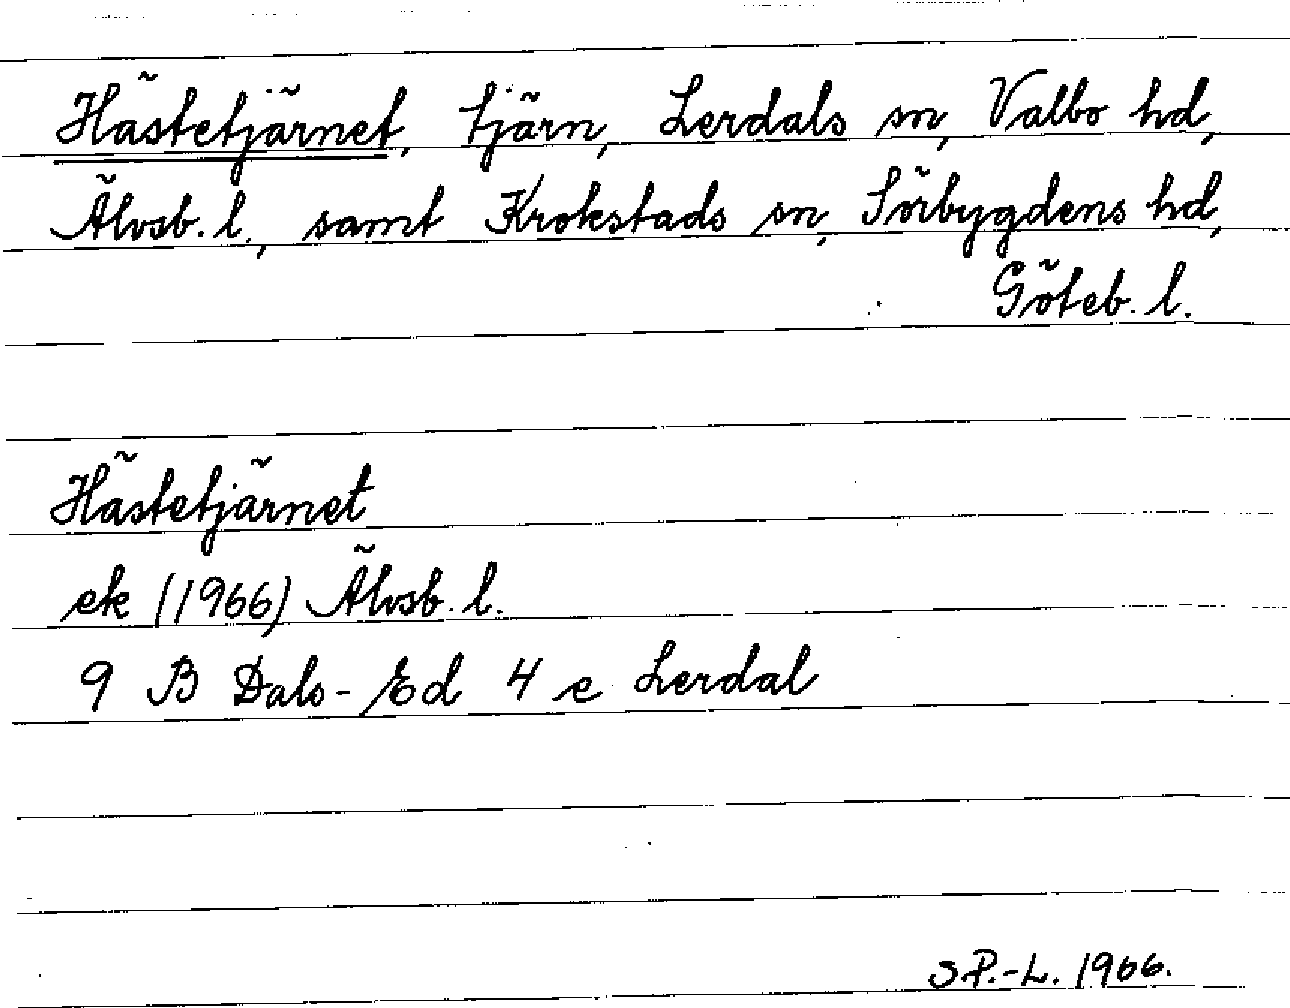 Hästetjärnet, tjärn, Lerdals sn, Valbo hd,
Älvsb. l., samt Krokstads sn, Sörbygdens hd,
Göteb. l.
Hästetjärnet
ek (1966) Älvsb. l.
9 B Dals-Ed 4 e Lerdal
SP.-L. 1966.